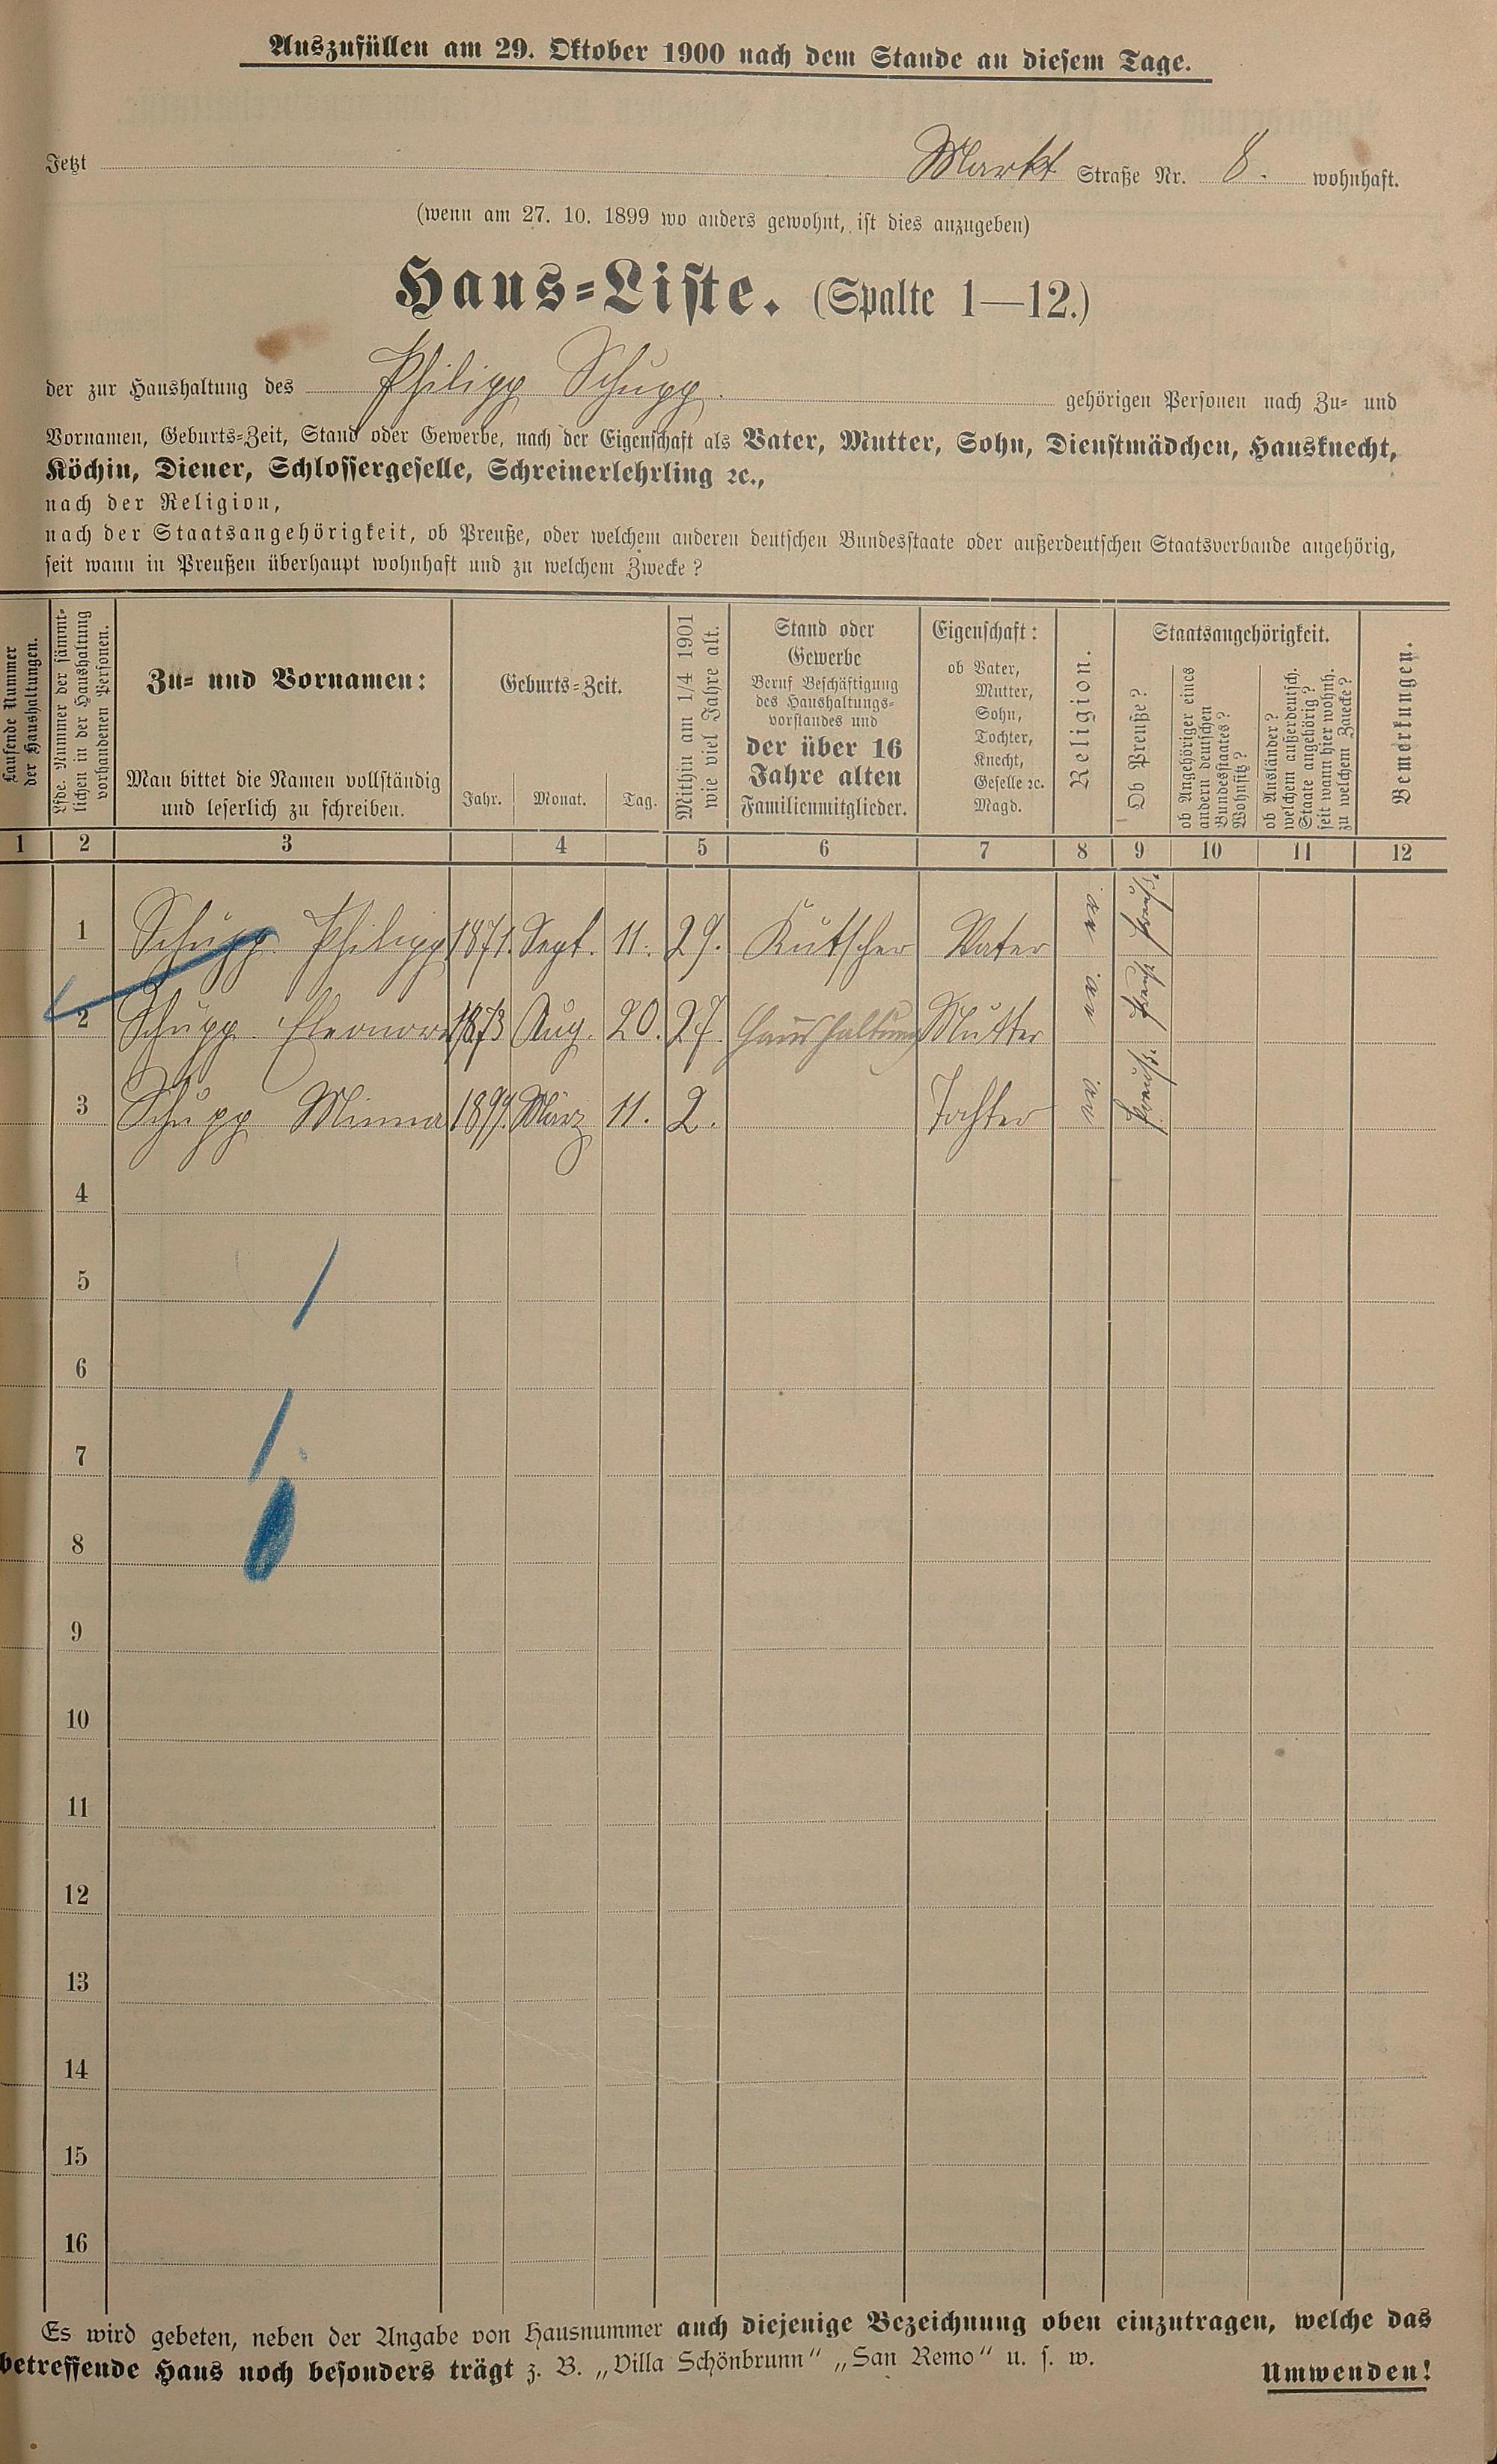 Auszufüllen am 29. Oktober 1900 nach dem Stande an diesem Tage.
Jetzt Markt Straße Nr. 8. wohnhaft.
(wenn am 27. 10. 1899 wo anders gewohnt, ist dies anzugeben)
Haus-Liste. (Spalte 1—12.)
der zur Haushaltung des Philipp Schupp. gehörigen Personen nach Zu- und
Vornamen, Geburts-Zeit, Stand oder Gewerbe, nach der Eigenschaft als Vater, Mutter, Sohn, Dienstmädchen, Hausknecht,
Köchin, Diener, Schlossergeselle, Schreinerlehrling ꝛc.,
nach der Religion,
nach der Staatsangehörigkeit, ob Preuße, oder welchem anderen deutschen Bundesstaate oder außerdeutschen Staatsverbande angehörig,
seit wann in Preußen überhaupt wohnhaft und zu welchem Zwecke?
Laufende Nummer
der Haushaltungen.
Lfde. Nummer der sämmt-
lichen in der Haushaltung
vorhandenen Personen.
Zu- und Vornamen:
Man bittet die Namen vollständig
und leserlich zu schreiben.
Geburts-Zeit.
Jahr. Monat. Tag.
Mithin am 1/4 1901
wie viel Jahre alt.
Stand oder
Gewerbe
Beruf Beschäftigung
des Haushaltungs-
vorstandes und
der über 16
Jahre alten
Familienmitglieder.
Eigenschaft:
ob Vater,
Mutter,
Sohn,
Tochter,
Knecht,
Geselle ꝛc.
Magd.
Religion.
Staatsangehörigkeit.
Ob Preuße?
ob Angehöriger eines
andern deutschen
Bundesstaates?
Wohnsitz?
ob Ausländer?
welchem außerdeutsch.
Staate angehörig?
seit wann hier wohnh.
zu welchem Zwecke?
Bemerkungen.
1 2 3 4 5 6 7 8 9 10 11 12
1 Schupp Philipp 1871. Sept. 11. 29. Kutscher Vater ev Preuß.
2 Schupp Eleonore 1873 Aug. 20. 27. Haushaltung Mutter ev Preuß.
3 Schupp Minna 1899. März 11. 2. Tochter ev Preuß.
4
5
6
7
8
9
10
11
12
13
14
15
16
Es wird gebeten, neben der Angabe von Hausnummer auch diejenige Bezeichnung oben einzutragen, welche das
betreffende Haus noch besonders trägt z. B. „Villa Schönbrunn" „San Remo" u. s. w.
Umwenden!